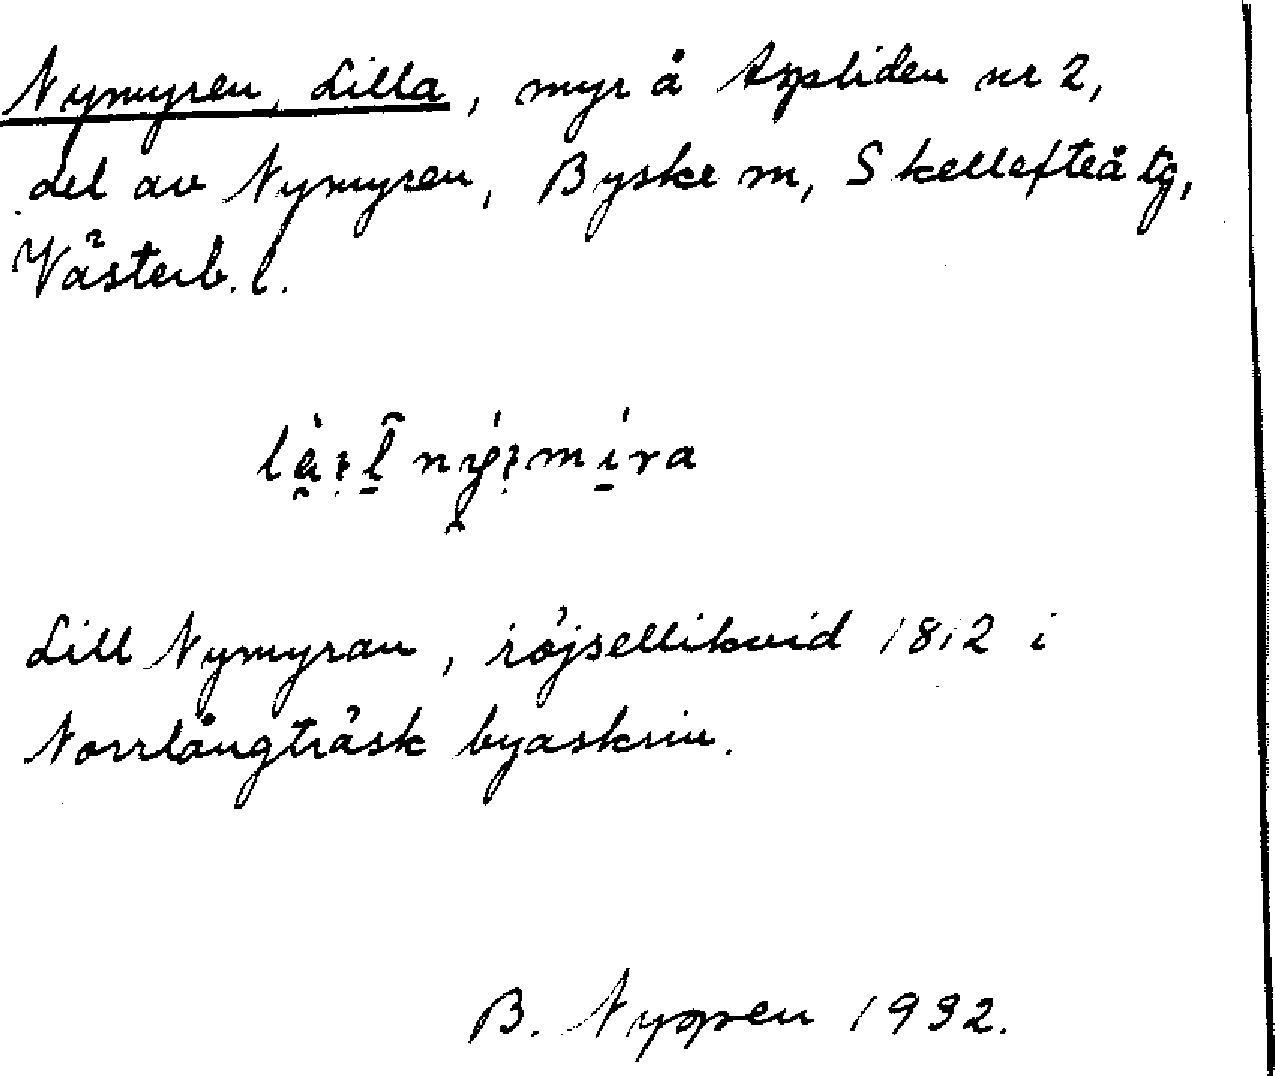 Nymyren, Lilla, myr å Aspliden nr 2,
del av Nymyren, Byske m, Skellefteå tg,
Västerb. l.
Lill Nymyran, röjsellikvid 1812 i
Norrlångträsk byaskrin.
B. Nyppen 1932.